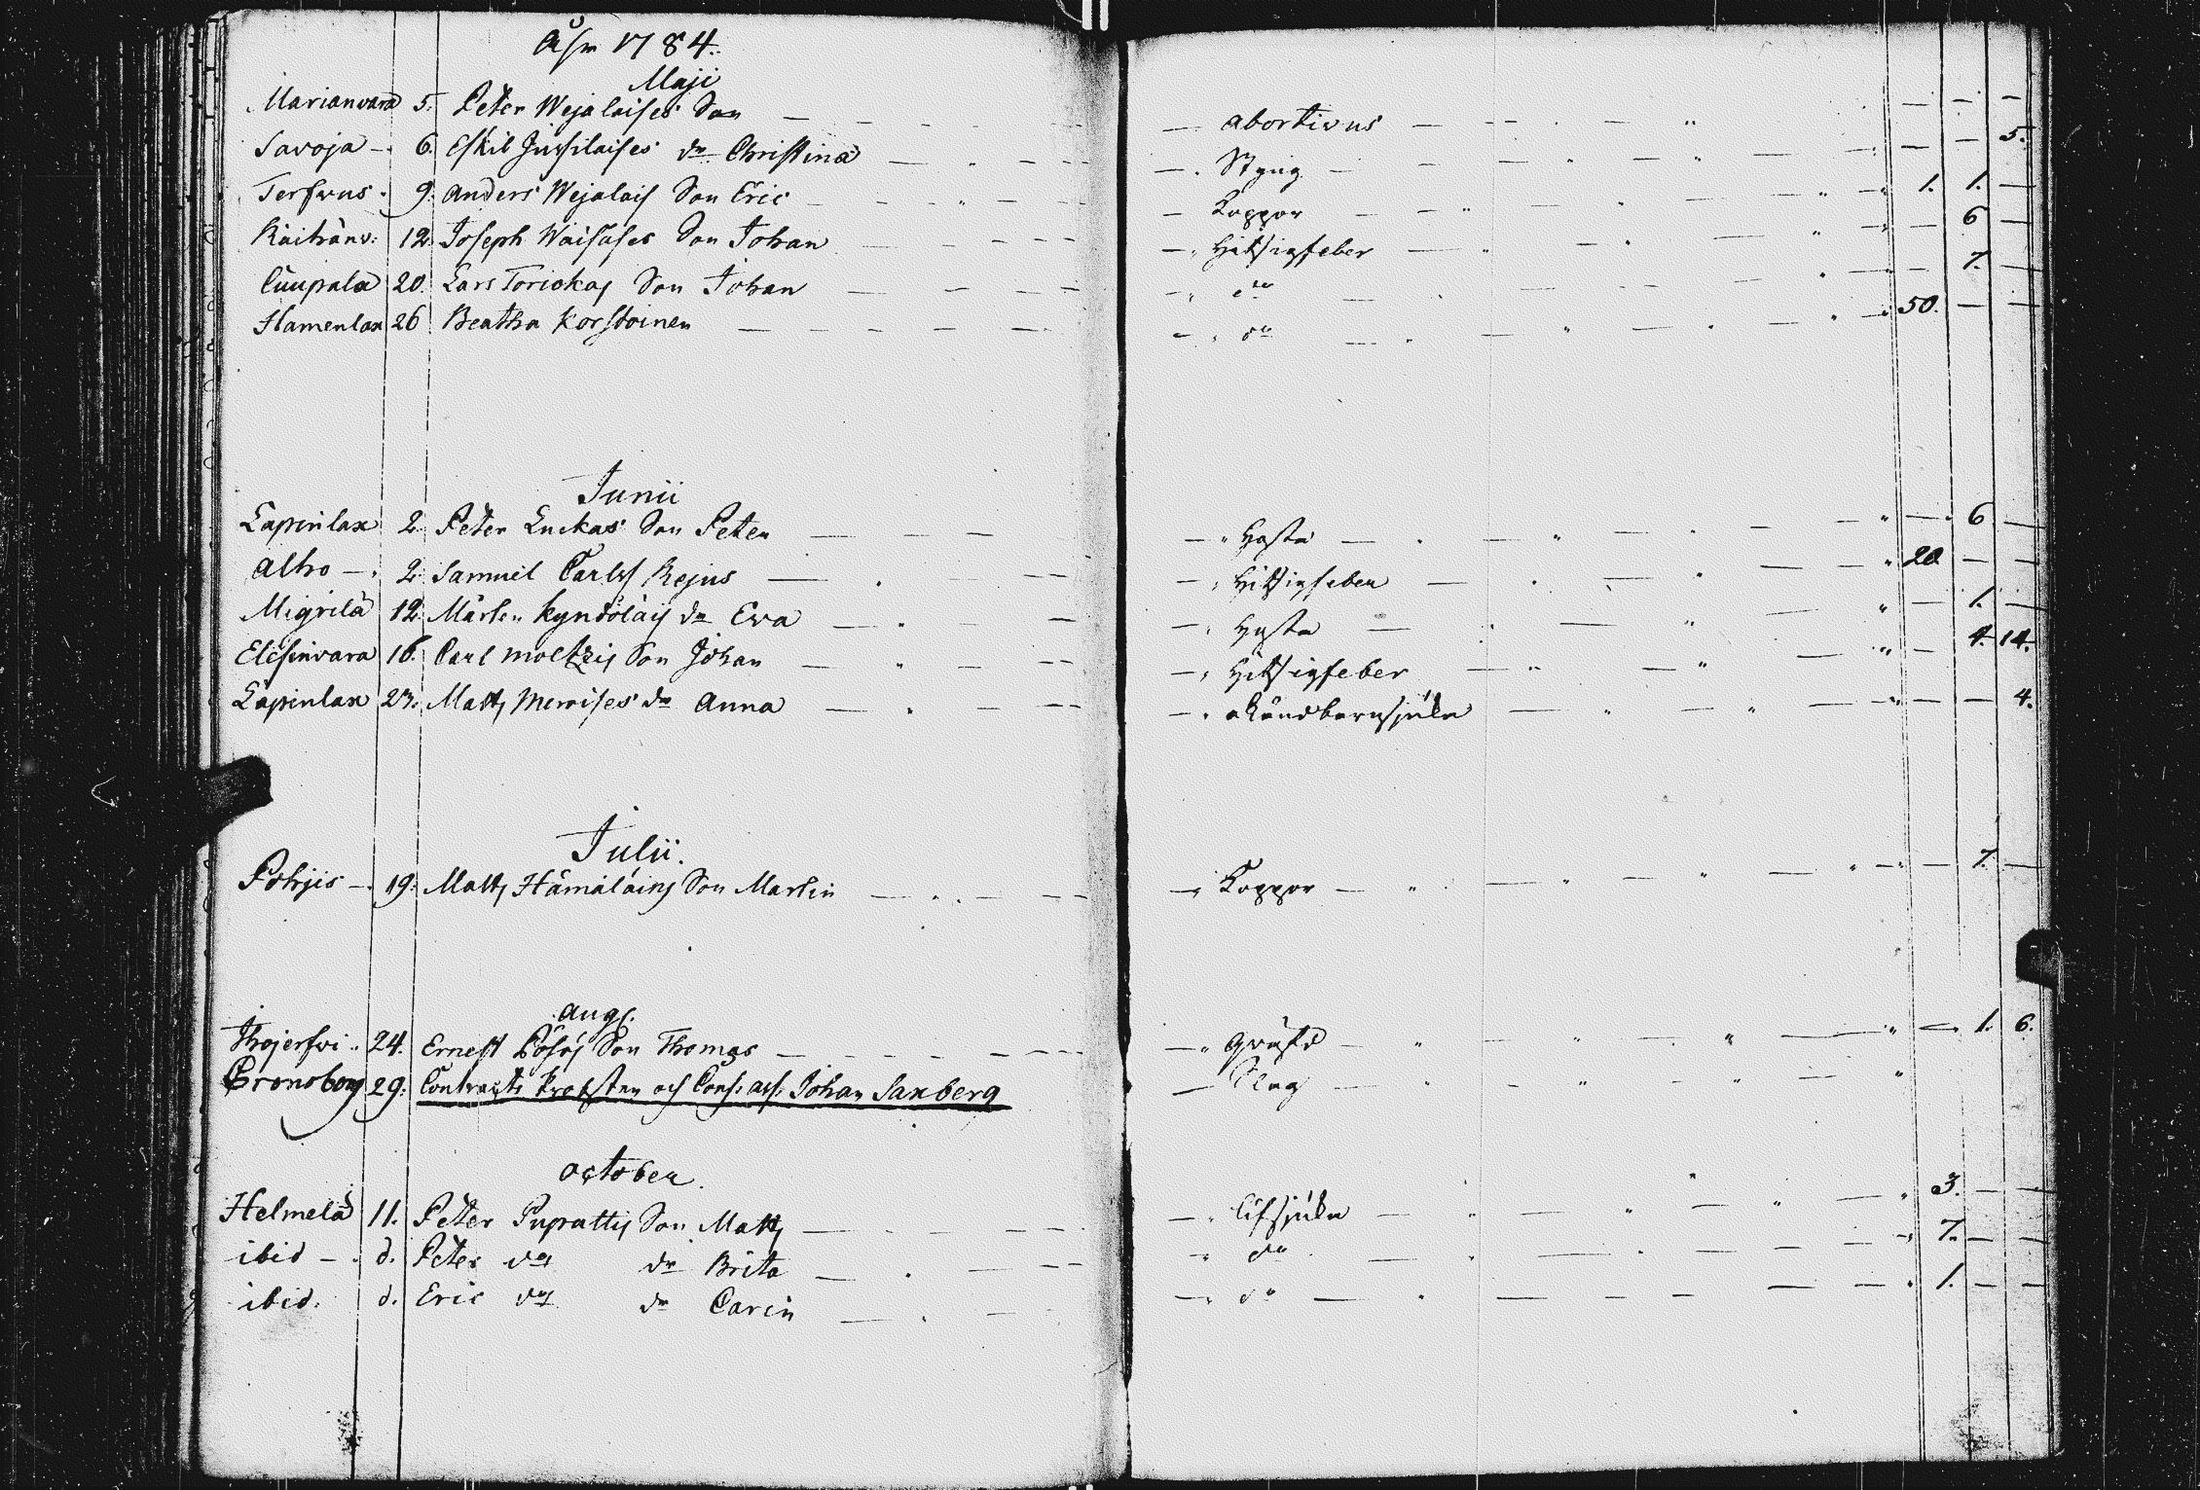 Åhr 1784.
Maji
Marianvara 5. Peter Wejalaises Son — abortivus — — —
Savoja 6. Eskil Jussilaises dr Christina — Styng — — 5.
Terfwus 9. Anders Wejalais Son Eric — Koppor 1. 1. —
Kaitränv: 12. Joseph Waisases Son Johan — Hitsigfeber — 6 —
Cuupala 20. Lars Torickas Son Johan — do — 7. —
Hamenlax 26 Beatha Korstoinen — do 50. — —
Junii
Lapinlax 2. Peter Luckas Son Peter — Hosta — 6 —
Alho 2. Samuel Carlss Rejus — Hitsigfeber 20 — —
Migrilä 12. Mårten Kyndöläis dr Ewa — Hosta — 1. —
Elisinvara 16. Carl Moltzis Son Johan — Hitsigfeber — 4. 14.
Lapinlax 23. Matts Meroises dr Anna — okändbarnsjuka — — 4.
Julii.
Pohjis 19. Matts Hämäläins Son Martin — Koppor — 7. —
Aug.
Thojerfwi 24. Ernest Pösös Son Thomas — — 1. 6.
Cronoborg 29. Contracts Prosten och Cons: ass: Johan Saxberg — Slag
October.
Helmelä 11. Peter Puprattis Son Matts — lifsjuka 3. — —
ibid d. Peter ds dr Brita — do 7. — —
ibid. d. Eric ds dr Carin — do 1. — —